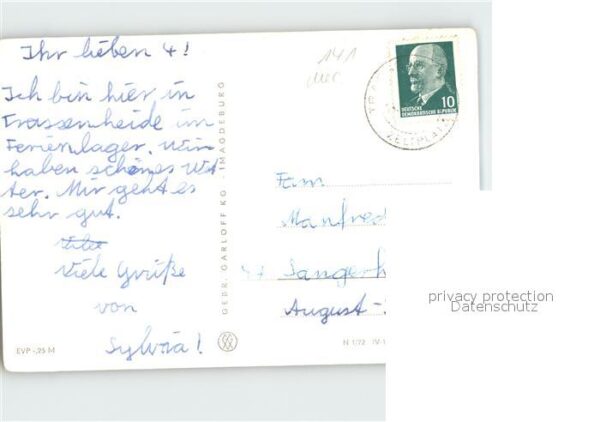 Ihr lieben 4!
Ich bin hier in
Trassenheide im
Ferienlager. Wir
haben schönes Wet
ter. Mir geht es
sehr gut.
Viele Grüße
von
Sylvia!
EVP -,25 M
GEBR. GARLOFF KG · MAGDEBURG
N 1/72 IV-1
141
10
DEUTSCHE
DEMOKRATISCHE REPUBLIK
TRA
ZELTPLATZ
Fam
Manfred
47 Sangerh
August-
privacy protection
Datenschutz